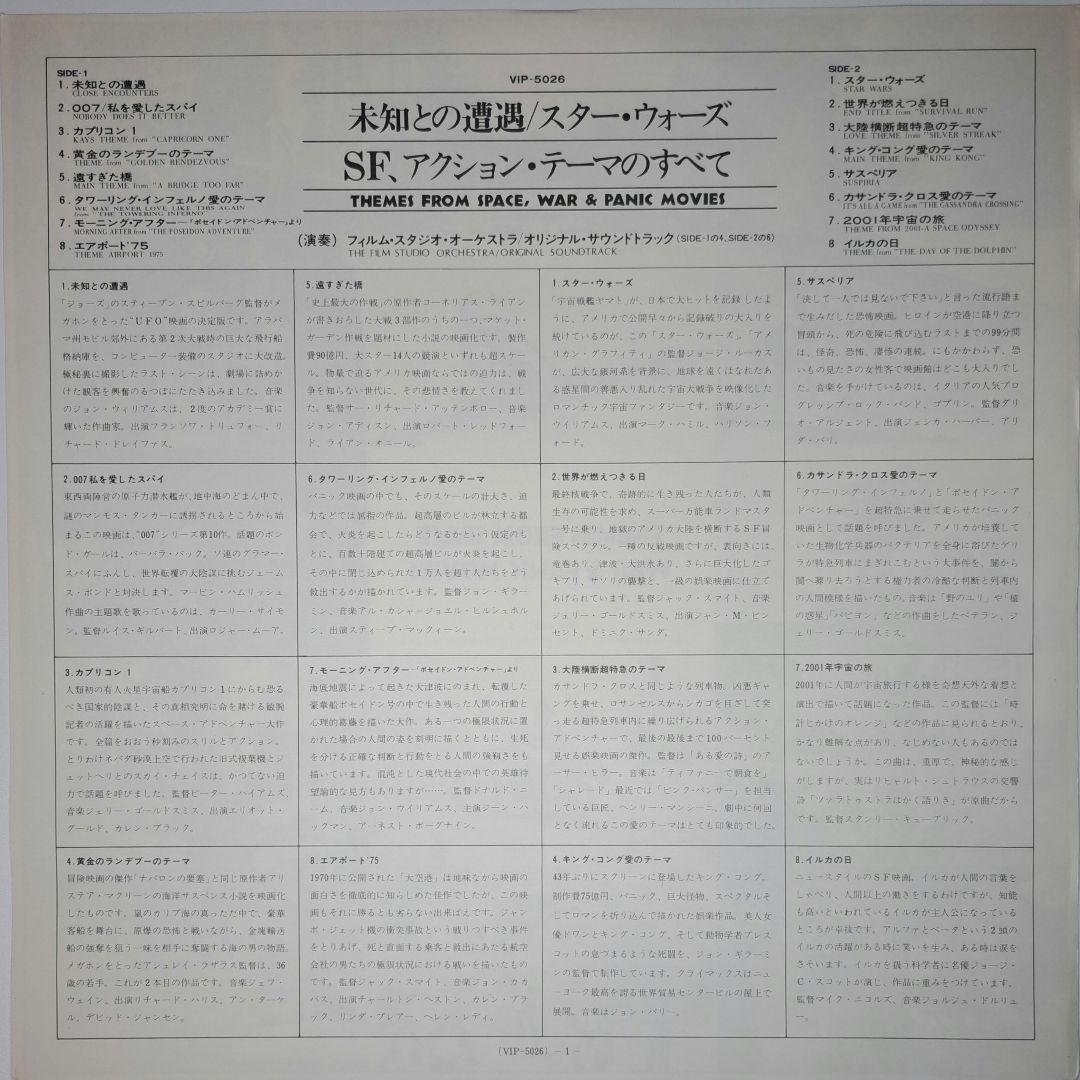 SIDE-1
1. 未知との遭遇
CLOSE ENCOUNTERS
2. 007/私を愛したスパイ
NOBODY DOES IT BETTER
3. カプリコン 1
KAYS THEME from "CAPRICORN ONE"
4. 黄金のランデブーのテーマ
THEME from "GOLDEN RENDEZVOUS"
5. 遠すぎた橋
MAIN THEME from "A BRIDGE TOO FAR"
6. タワーリング・インフェルノ愛のテーマ
WE MAY NEVER LOVE LIKE THIS AGAIN
from "THE TOWERING INFERNO"
7. モーニング・アフター…「ポセイドン・アドベンチャー」より
MORNING AFTER from "THE POSEIDON ADVENTURE"
8. エアポート'75
THEME AIRPORT 1975
VIP-5026
未知との遭遇/スター・ウォーズ
SF、アクション・テーマのすべて
THEMES FROM SPACE, WAR & PANIC MOVIES
(演奏) フィルム・スタジオ・オーケストラ/オリジナル・サウンドトラック (SIDE-1の4、SIDE-2の6)
THE FILM STUDIO ORCHESTRA/ORIGINAL SOUNDTRACK
SIDE-2
1. スター・ウォーズ
STAR WARS
2. 世界が燃えつきる日
END TITLE from "SURVIVAL RUN"
3. 大陸横断超特急のテーマ
LOVE THEME from "SILVER STREAK"
4. キング・コング愛のテーマ
MAIN THEME from "KING KONG"
5. サスペリア
SUSPIRIA
6. カサンドラ・クロス愛のテーマ
IT'S ALL A GAME from "THE CASSANDRA CROSSING"
7. 2001年宇宙の旅
THEME FROM 2001-A SPACE ODYSSEY
8 イルカの日
THEME from "THE DAY OF THE DOLPHIN"
1.未知との遭遇
「ジョーズ」のスティーブン・スピルバーグ監督がメ
ガホンをとった"UFO"映画の決定版です。アラバ
マ州モビル郊外にある第2次大戦時の巨大な飛行船
格納庫を、コンピューター装備のスタジオに大改造。
極秘裏に撮影したラスト・シーンは、劇場に詰めか
けた観客を興奮のるつぼにたたき込みました。音楽
のジョン・ウィリアムスは、2度のアカデミー賞に
輝いた作曲家。出演フランソワ・トリュフォー、リ
チャード・ドレイファス。
2.007私を愛したスパイ
東西両陣営の原子力潜水艦が、地中海のどまん中で、
謎のマンモス・タンカーに誘拐されるところから始
まるこの映画は、"007"シリーズ第10作。話題のボン
ド・ガールは、バーバラ・バック。ソ連のグラマー・
スパイにふんし、世界転覆の大陰謀に挑むジェーム
ス・ボンドと対決します。マービン・ハムリッシュ
作曲の主題歌を歌っているのは、カーリー・サイモ
ン。監督ルイス・ギルバート、出演ロジャー・ムーア。
3.カプリコン 1
人類初の有人火星宇宙船カプリコン1にからむ恐る
べき国家的陰謀と、その真相究明に命を賭ける敏腕
記者の活躍を描いたスペース・アドベンチャー大作
です。全篇をおおう秒刻みのスリルとアクション。
とりわけネバダ砂漠上空で行われた旧式複葉機とジ
ェットヘリとのスカイ・チェイスは、かつてない迫
力で話題を呼びました。監督ピーター・ハイアムズ、
音楽ジェリー・ゴールドスミス、出演エリオット・
グールド、カレン・ブラック。
4.黄金のランデブーのテーマ
冒険映画の傑作「ナバロンの要塞」と同じ原作者アリ
ステア・マクリーンの海洋サスペンス小説を映画化
したものです。嵐のカリブ海の真っただ中で、豪華
客船を舞台に、原爆の恐怖と戦いながら、金塊輸送
船の強奪を狙う一味を相手に奮闘する海の男の物語。
メガホンをとったアシュレイ・ラザラス監督は、36
歳の若手。これが2本目の作品です。音楽ジェフ・
ウェイン、出演リチャード・ハリス、アン・ターケ
ル、デビッド・ジャンセン。
5.遠すぎた橋
「史上最大の作戦」の原作者コーネリアス・ライアン
が書きおろした大戦3部作のうちの一つ、マケット・
ガーデン作戦を題材にした小説の映画化です。製作
費90億円、大スター14人の競演といずれも超スケー
ル。物量で迫るアメリカ映画ならではの迫力は、戦
争を知らない世代に、その悲惜さを教えてくれまし
た。監督サー・リチャード・アッテンボロー、音楽
ジョン・アディスン、出演ロバート・レッドフォー
ド、ライアン・オニール。
6.タワーリング・インフェルノ愛のテーマ
パニック映画の中でも、そのスケールの壮大さ、迫
力などでは屈指の作品。超高層のビルが林立する都
会で、火炎を起こしたらどうなるかという仮定のも
とに、百数十階建ての超高層ビルが火炎を起こし、
その中に閉じ込められた1万人を超す人たちをどう
救出するかが描かれています。監督ジョン・ギラー
ミン、音楽アル・カシャ＝ジョエル・ヒルシュホル
ン、出演スティーブ・マックィーン。
7.モーニング・アフター…「ポセイドン・アドベンチャー」より
海底地震によって起きた大津波にのまれ、転覆した
豪華船ポセイドン号の中で生き残った人間の行動と
心理的葛藤を描いた大作。ある一つの極限状況に置
かれた場合の人間の姿を刻明に描くとともに、生死
を分ける正確な判断と行動をとる人間の強靱さをも
描いています。混沌とした現代社会の中での英雄待
望論的な見方もありますが……。監督ドナルド・ニ
ーム、音楽ジョン・ウイリアムス、主演ジーン・ハ
ックマン、アーネスト・ボーグナイン。
8.エアポート'75
1970年に公開された「大空港」は地味ながら映画の
面白さを徹底的に知らしめた佳作でしたが、この映
画もそれに勝るとも劣らない出来ばえです。ジャン
ボ・ジェット機の衝突事故という戦りつすべき事件
をとりあげ、死と直面する乗客と救出にあたる航空
会社の男たちの極限状況における戦いを描いたもの
です。監督ジャック・スマイト、音楽ジョン・カカ
バス、出演チャールトン・ヘストン、カレン・ブラ
ック、リンダ・ブレアー、ヘレン・レディ。
1.スター・ウォーズ
「宇宙戦艦ヤマト」が、日本で大ヒットを記録したよ
うに、アメリカで公開早々から記録破りの大入りを
続けているのが、この「スター・ウォーズ」。「アメ
リカン・グラフィティ」の監督ジョージ・ルーカス
が、広大な銀河系を背景に、地球を遠くはなれたあ
る惑星間の善悪入り乱れた宇宙大戦争を映像化した
ロマンチック宇宙ファンタジーです。音楽ジョン・
ウイリアムス、出演マーク・ハミル、ハリソン・フ
ォード。
2.世界が燃えつきる日
最終核戦争で、奇跡的に生き残った人たちが、人類
生存の可能性を求め、スーパー万能車ランドマスタ
ー号に乗り、地獄のアメリカ大陸を横断するSF冒
険スペクタル。一種の反戦映画ですが、表向きには、
竜巻あり、津波・大洪水あり、さらに巨大化したゴ
キブリ、サソリの襲撃と、一級の娯楽映画に仕立て
あげられています。監督ジャック・スマイト、音楽
ジェリー・ゴールドスミス、出演ジャン・M・ビン
セント、ドミニク・サンダ。
3.大陸横断超特急のテーマ
カサンドラ・クロスと同じような列車物。凶悪ギャ
ングを乗せ、ロサンゼルスからシカゴを目ざして突
っ走る超特急列車内に繰り広げられるアクション・
アドベンチャーで、最後の最後まで100パーセント
見せる娯楽映画の傑作。監督は「ある愛の詩」のア
ーサー・ヒラー。音楽は「ティファニーで朝食を」
「シャレード」最近では「ピンク・パンサー」を担当
している巨匠、ヘンリー・マンシーニ、劇中に何回
となく流れるこの愛のテーマはとても印象的でした。
4.キング・コング愛のテーマ
43年ぶりにスクリーンに登場したキング・コング。
制作費75億円、パニック、巨大怪物、スペクタルそ
してロマンを折り込んで描かれた娯楽作品。美人女
優ドワンとキング・コング、そして動物学者プレス
コットの息づまるような死闘を、ジョン・ギラーミ
ンの監督で制作しています。クライマックスはニュ
ーヨーク最高を誇る世界貿易センタービルの屋上で
展開。音楽はジョン・バリー。
5.サスペリア
「決して一人では見ないで下さい」と言った流行語ま
で生みだした恐怖映画。ヒロインが空港に降り立つ
冒頭から、死の危険に飛び込むラストまでの99分間
は、怪奇、恐怖、凄惨の連続。にもかかわらず、恐
いもの見たさの女性客で映画館はどこも大入りでし
た。音楽を手がけているのは、イタリアの人気プロ
グレッシブ・ロック・バンド、ゴブリン。監督ダリ
オ・アルジェント、出演ジェシカ・ハーパー、アリ
ダ・バリ。
6.カサンドラ・クロス愛のテーマ
「タワーリング・インフェルノ」と「ポセイドン・ア
ドベンチャー」を超特急に乗せて走らせたパニック
映画として話題を呼びました。アメリカが培養して
いた生物化学兵器のバクテリアを全身に浴びたゲリ
ラが特急列車にまぎれこむという大事件を、闇から
闇へ葬り去ろうとする権力者の冷酷な判断と列車内
の人間模様を描いたもの。音楽は「野のユリ」や「猿
の惑星」「パピヨン」などの作曲をしたベテラン、ジ
ェリー・ゴールドスミス。
7.2001年宇宙の旅
2001年に人間が宇宙旅行する様を奇想天外な着想と
演出で描いて話題になった作品。この監督には「時
計じかけのオレンジ」などの作品に見られるとおり、
かなり難解な点があり、なじめない人もあるのでは
ないでしょうか。この曲は、重厚で、神秘的な感じ
がしますが、実はリヒャルト・シュトラウスの交響
詩「ツァラトゥストラはかく語りき」が原曲だからで
す。監督スタンリー・キューブリック。
8.イルカの日
ニュースタイルのSF映画。イルカが人間の言葉を
しゃべり、人間以上の働きをするわけですが、知能
も高いといわれているイルカが主人公になっている
ところが卓抜です。アルファとベータという2頭の
イルカの活躍がある時に笑いを生み、ある時は涙を
さそいます。イルカを扱う科学者に名優ジョージ・
C・スコットが演じ、作品に重みをつけています。
監督マイク・ニコルズ、音楽ジョルジュ・ドルリュ
ー。
(VIP-5026) -1-